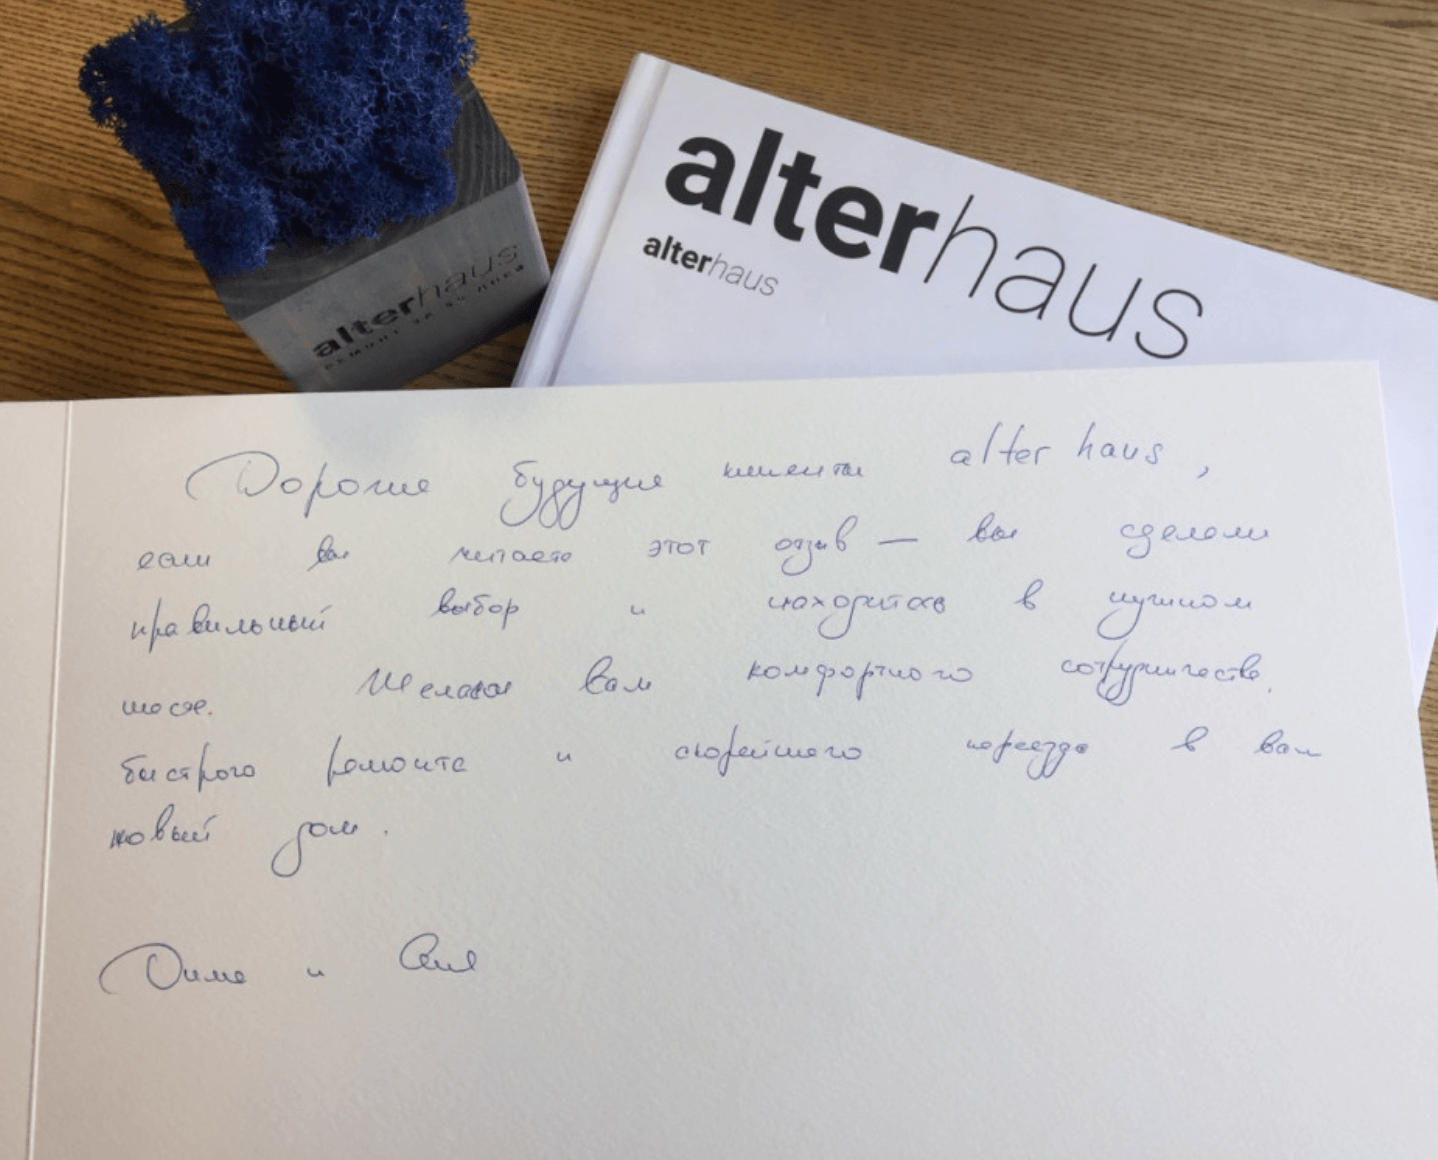 alterhaus
alterhaus
alterhaus
ремонт за 90 дней
Дорогие будущие клиенты alter haus,
если вы читаете этот отзыв — вы сделали
правильный выбор и находитесь в нужном
месте. Желаем вам комфортного сотрудничества,
быстрого ремонта и скорейшего переезда в ваш
новый дом.
Дима и